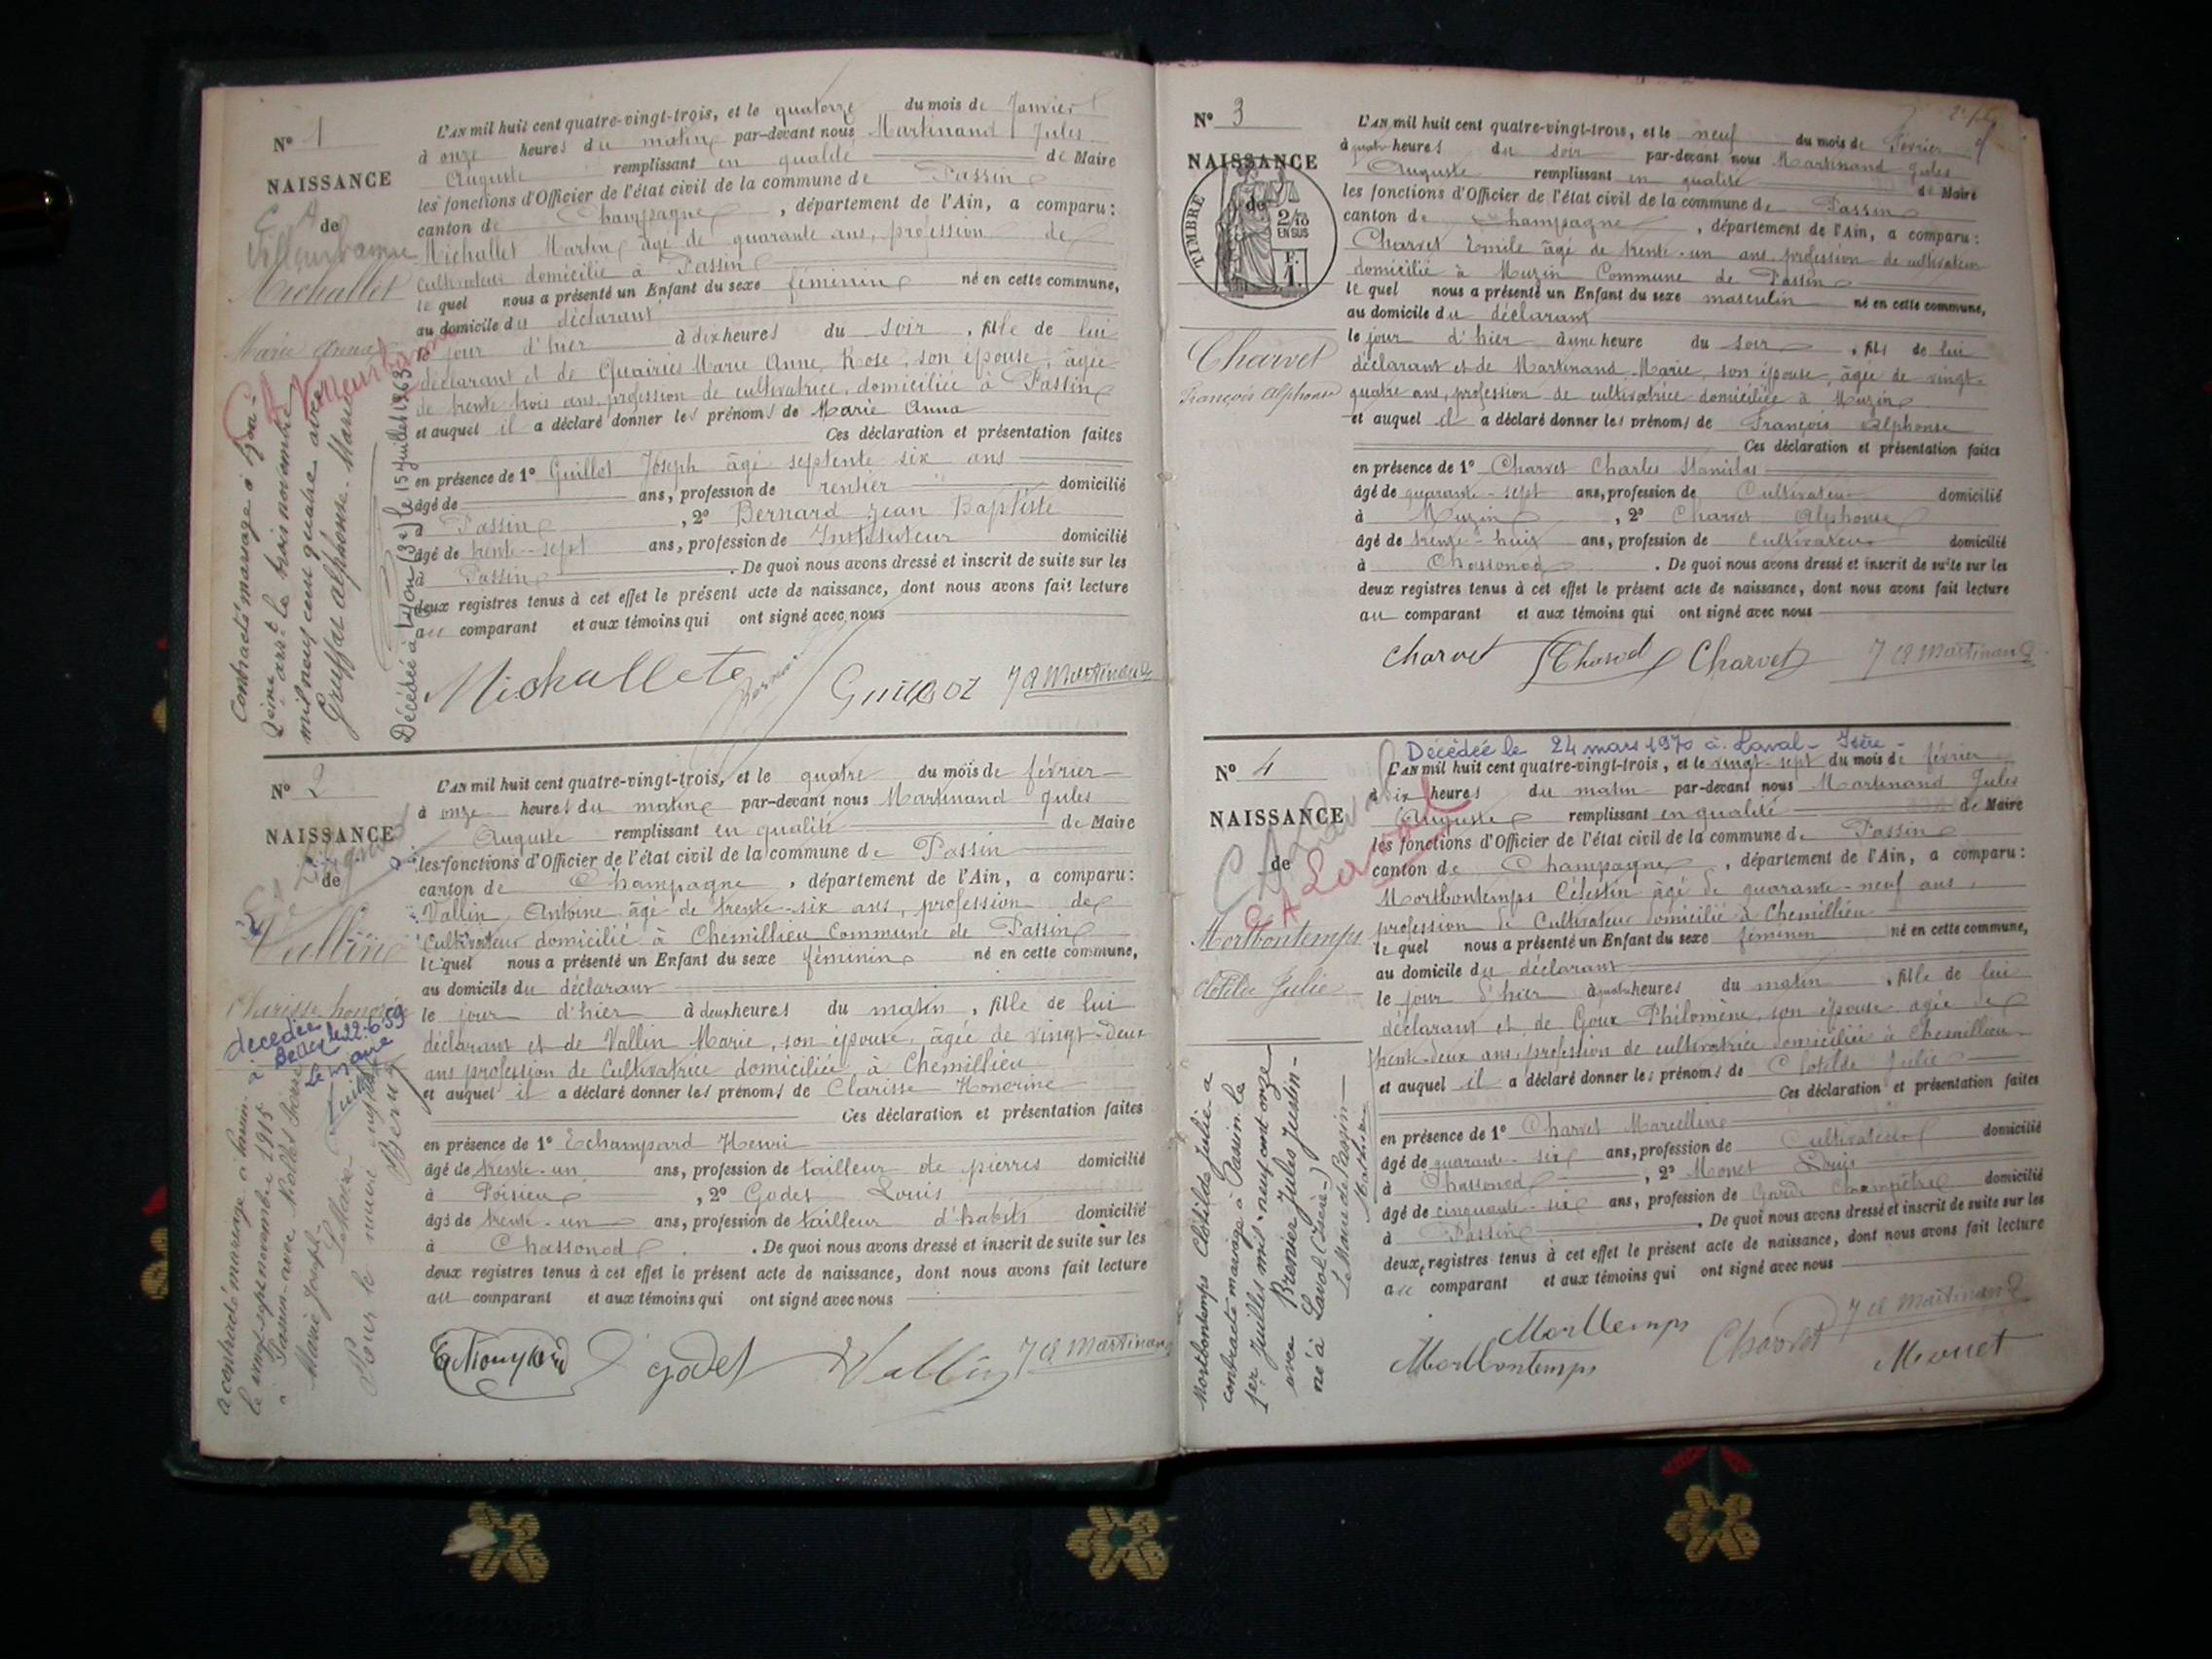 N° 1
NAISSANCE
de
Villeurbanne
Michallet
Marie Anna
Villeurbanne
Contracté mariage à Lyon
2ème arrt le trois novembre
mil neuf cent quatre avec
Gruffat Alphonse-Marie
Décédée à Lyon (3e) le 15 juillet 1963
L'AN mil huit cent quatre-vingt-trois, et le quatorze du mois de Janvier
à onze heures du matin par-devant nous Martinand Jules
Auguste remplissant en qualité de Maire
les fonctions d'Officier de l'état civil de la commune de Passin
canton de Champagne, département de l'Ain, a comparu :
Michallet Martin âgé de quarante ans, profession de
cultivateur domicilié à Passin
le quel nous a présenté un Enfant du sexe féminin né en cette commune,
au domicile du déclarant
le jour d'hier à dix heures du soir, fille de lui
déclarant et de Quairies Marie Anne Rose, son épouse, âgée
de trente trois ans, profession de cultivatrice, domiciliée à Passin
et auquel il a déclaré donner les prénoms de Marie Anna
Ces déclaration et présentation faites
en présence de 1° Guillot Joseph âgé septente six ans
âgé de ans, profession de rentier domicilié
à Passin, 2° Bernard Jean Baptiste
âgé de trente-sept ans, profession de Instituteur domicilié
à Passin. De quoi nous avons dressé et inscrit de suite sur les
deux registres tenus à cet effet le présent acte de naissance, dont nous avons fait lecture
au comparant et aux témoins qui ont signé avec nous
Michallet Guillot J A Martinand
N° 2
NAISSANCE
de
Vallin
Clarisse honorine
décédée
à Belley le 22.6.59
Le Maire
a contracté mariage à Passin
le vingt sept novembre 1915
à Passin avec
Marie Joseph
Le Maire
Pour le maire
L'AN mil huit cent quatre-vingt-trois, et le quatre du mois de février
à onze heures du matin par-devant nous Martinand Jules
Auguste remplissant en qualité de Maire
les fonctions d'Officier de l'état civil de la commune de Passin
canton de Champagne, département de l'Ain, a comparu :
Vallin Antoine âgé de trente-six ans, profession de
Cultivateur domicilié à Chemillieu Commune de Passin
le quel nous a présenté un Enfant du sexe féminin né en cette commune,
au domicile du déclarant
le jour d'hier à deux heures du matin, fille de lui
déclarant et de Vallin Marie, son épouse, âgée de vingt-deux
ans profession de Cultivatrice domiciliée à Chemillieu
et auquel il a déclaré donner les prénoms de Clarisse Honorine
Ces déclaration et présentation faites
en présence de 1° Echampard Henri
âgé de trente-un ans, profession de tailleur de pierres domicilié
à Poisieu, 2° Godet Louis
âgé de trente-un ans, profession de tailleur d'habits domicilié
à Chassonod. De quoi nous avons dressé et inscrit de suite sur les
deux registres tenus à cet effet le présent acte de naissance, dont nous avons fait lecture
au comparant et aux témoins qui ont signé avec nous
godet Vallin J A Martinand
N° 3
NAISSANCE
de
TIMBRE
2/10
EN SUS
F.
1.
Charvet
François Alphonse
L'AN mil huit cent quatre-vingt-trois, et le neuf du mois de Février
à quatre heures du soir par-devant nous Martinand Jules
Auguste remplissant en qualité de Maire
les fonctions d'Officier de l'état civil de la commune de Passin
canton de Champagne, département de l'Ain, a comparu :
Charvet Emile âgé de trente-un ans, profession de cultivateur
domicilié à Muzin Commune de Passin
le quel nous a présenté un Enfant du sexe masculin né en cette commune,
au domicile du déclarant
le jour d'hier à une heure du soir, fils de lui
déclarant et de Martinand Marie, son épouse, âgée de vingt-
quatre ans, profession de cultivatrice domiciliée à Muzin
et auquel il a déclaré donner les prénoms de François Alphonse
Ces déclaration et présentation faites
en présence de 1° Charvet Charles Stanislas
âgé de quarante-sept ans, profession de Cultivateur domicilié
à Muzin, 2° Charvet Alphonse
âgé de trente-huit ans, profession de Cultivateur domicilié
à Chassonod. De quoi nous avons dressé et inscrit de suite sur les
deux registres tenus à cet effet le présent acte de naissance, dont nous avons fait lecture
au comparant et aux témoins qui ont signé avec nous
Charvet Charvet J A Martinand
Décédée le 24 mars 1970 à Laval - Isère -
N° 4
NAISSANCE
de
Laval
Mortbontemps
Clotilde Julie
Mortbontemps Clotilde Julie a
contracté mariage à Passin le
1er Juillet mil-neuf cent onze
avec Brenier Jules Justin-
né à Laval (Isère-)
Le Maire de Passin
L'AN mil huit cent quatre-vingt-trois, et le vingt-sept du mois de février
à dix heures du matin par-devant nous Martinand Jules
Auguste remplissant en qualité de Maire
les fonctions d'Officier de l'état civil de la commune de Passin
canton de Champagne, département de l'Ain, a comparu :
Mortbontemps Célestin âgé de quarante-neuf ans,
profession de Cultivateur domicilié à Chemillieu
le quel nous a présenté un Enfant du sexe féminin né en cette commune,
au domicile du déclarant
le jour d'hier à quatre heures du matin, fille de lui
déclarant et de Goux Philomène, son épouse, agée de
trente-deux ans, profession de cultivatrice domiciliée à Chemillieu
et auquel il a déclaré donner les prénoms de Clotilde Julie
Ces déclaration et présentation faites
en présence de 1° Charvet Marcellin
âgé de quarante-six ans, profession de Cultivateur domicilié
à Chassonod, 2° Monet Louis
âgé de cinquante-six ans, profession de Garde Champêtre domicilié
à Passin. De quoi nous avons dressé et inscrit de suite sur les
deux registres tenus à cet effet le présent acte de naissance, dont nous avons fait lecture
au comparant et aux témoins qui ont signé avec nous
Mortbontemps Charvet J A Martinand
Monet